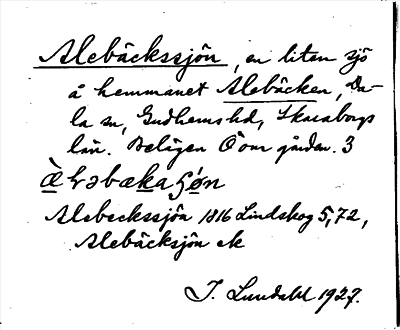 Alebäckssjön, en liten sjö
å hemmanet Alebäcken, Da-
la sn, Gudhems hd, Skaraborgs
län. Belägen Ö om gården. 3
Alebeckssjön 1816 Lindskog 5,72,
Alebäcksjön ek
J. Lundahl 1927.